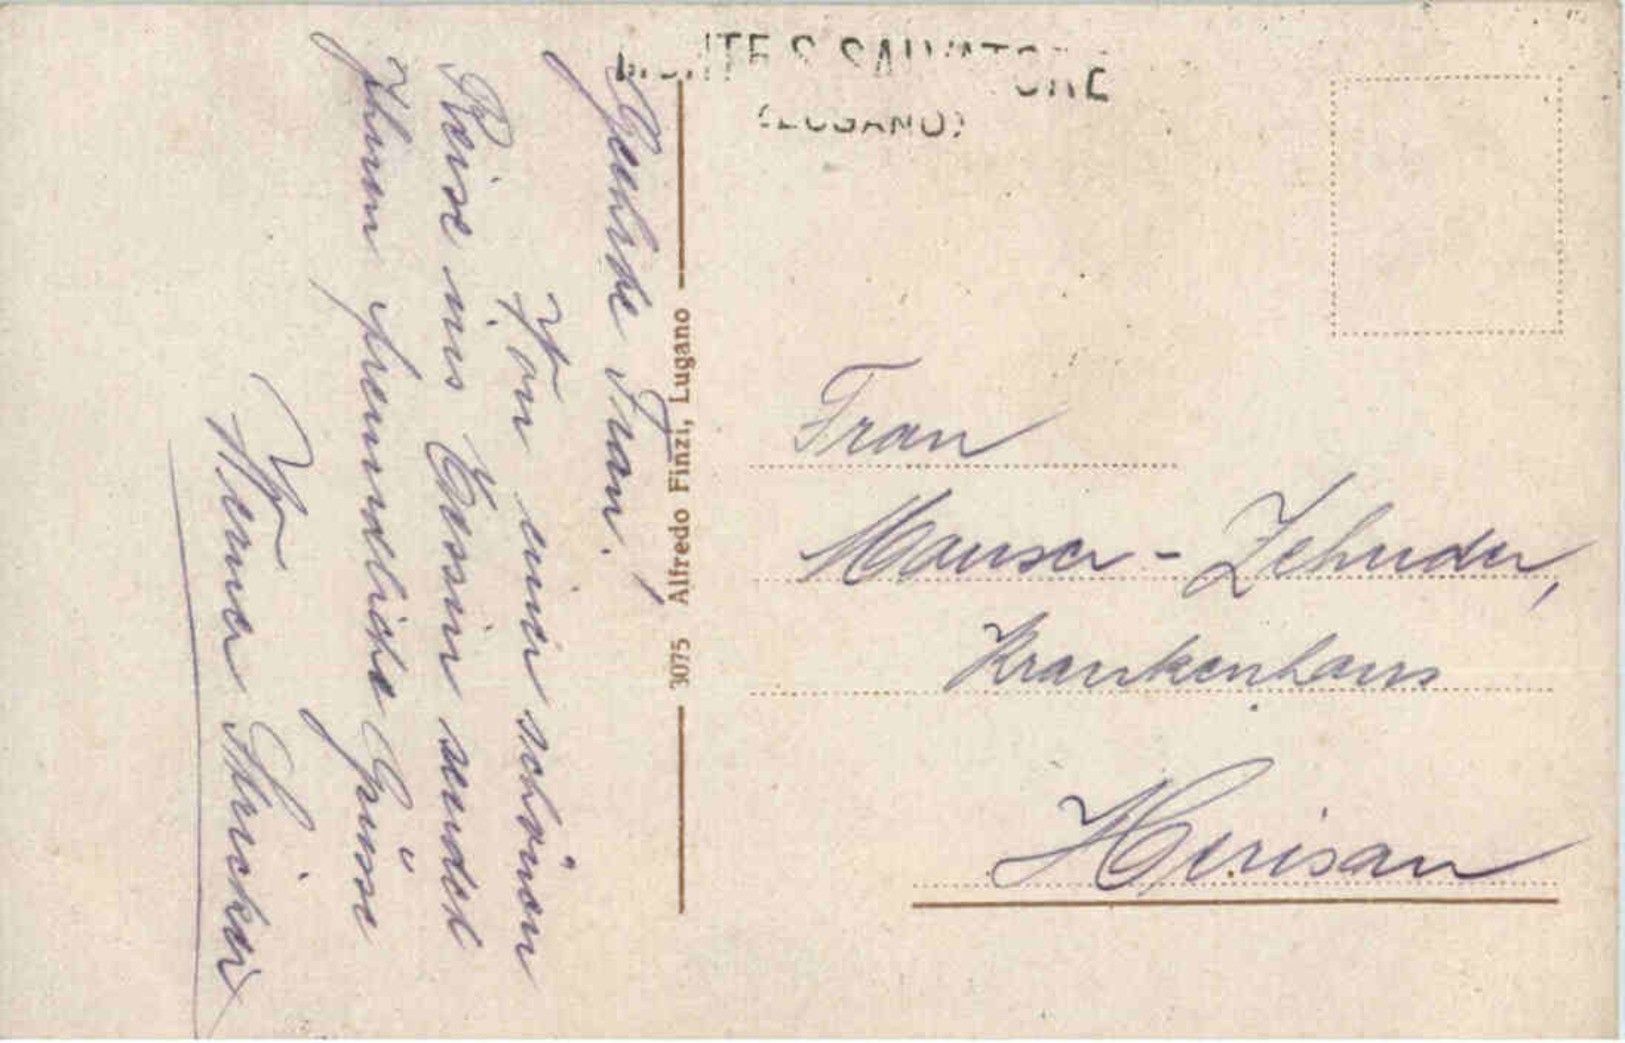 MONTE S. SALVATORE
(LUGANO)
Geehrte Frau!
Von einer schönen
Reise ins Tessin sendet
Ihnen freundliche Grüsse
3075 Alfredo Finzi, Lugano
Frau
Mauser - Zehnder,
Krankenhaus
Herisau